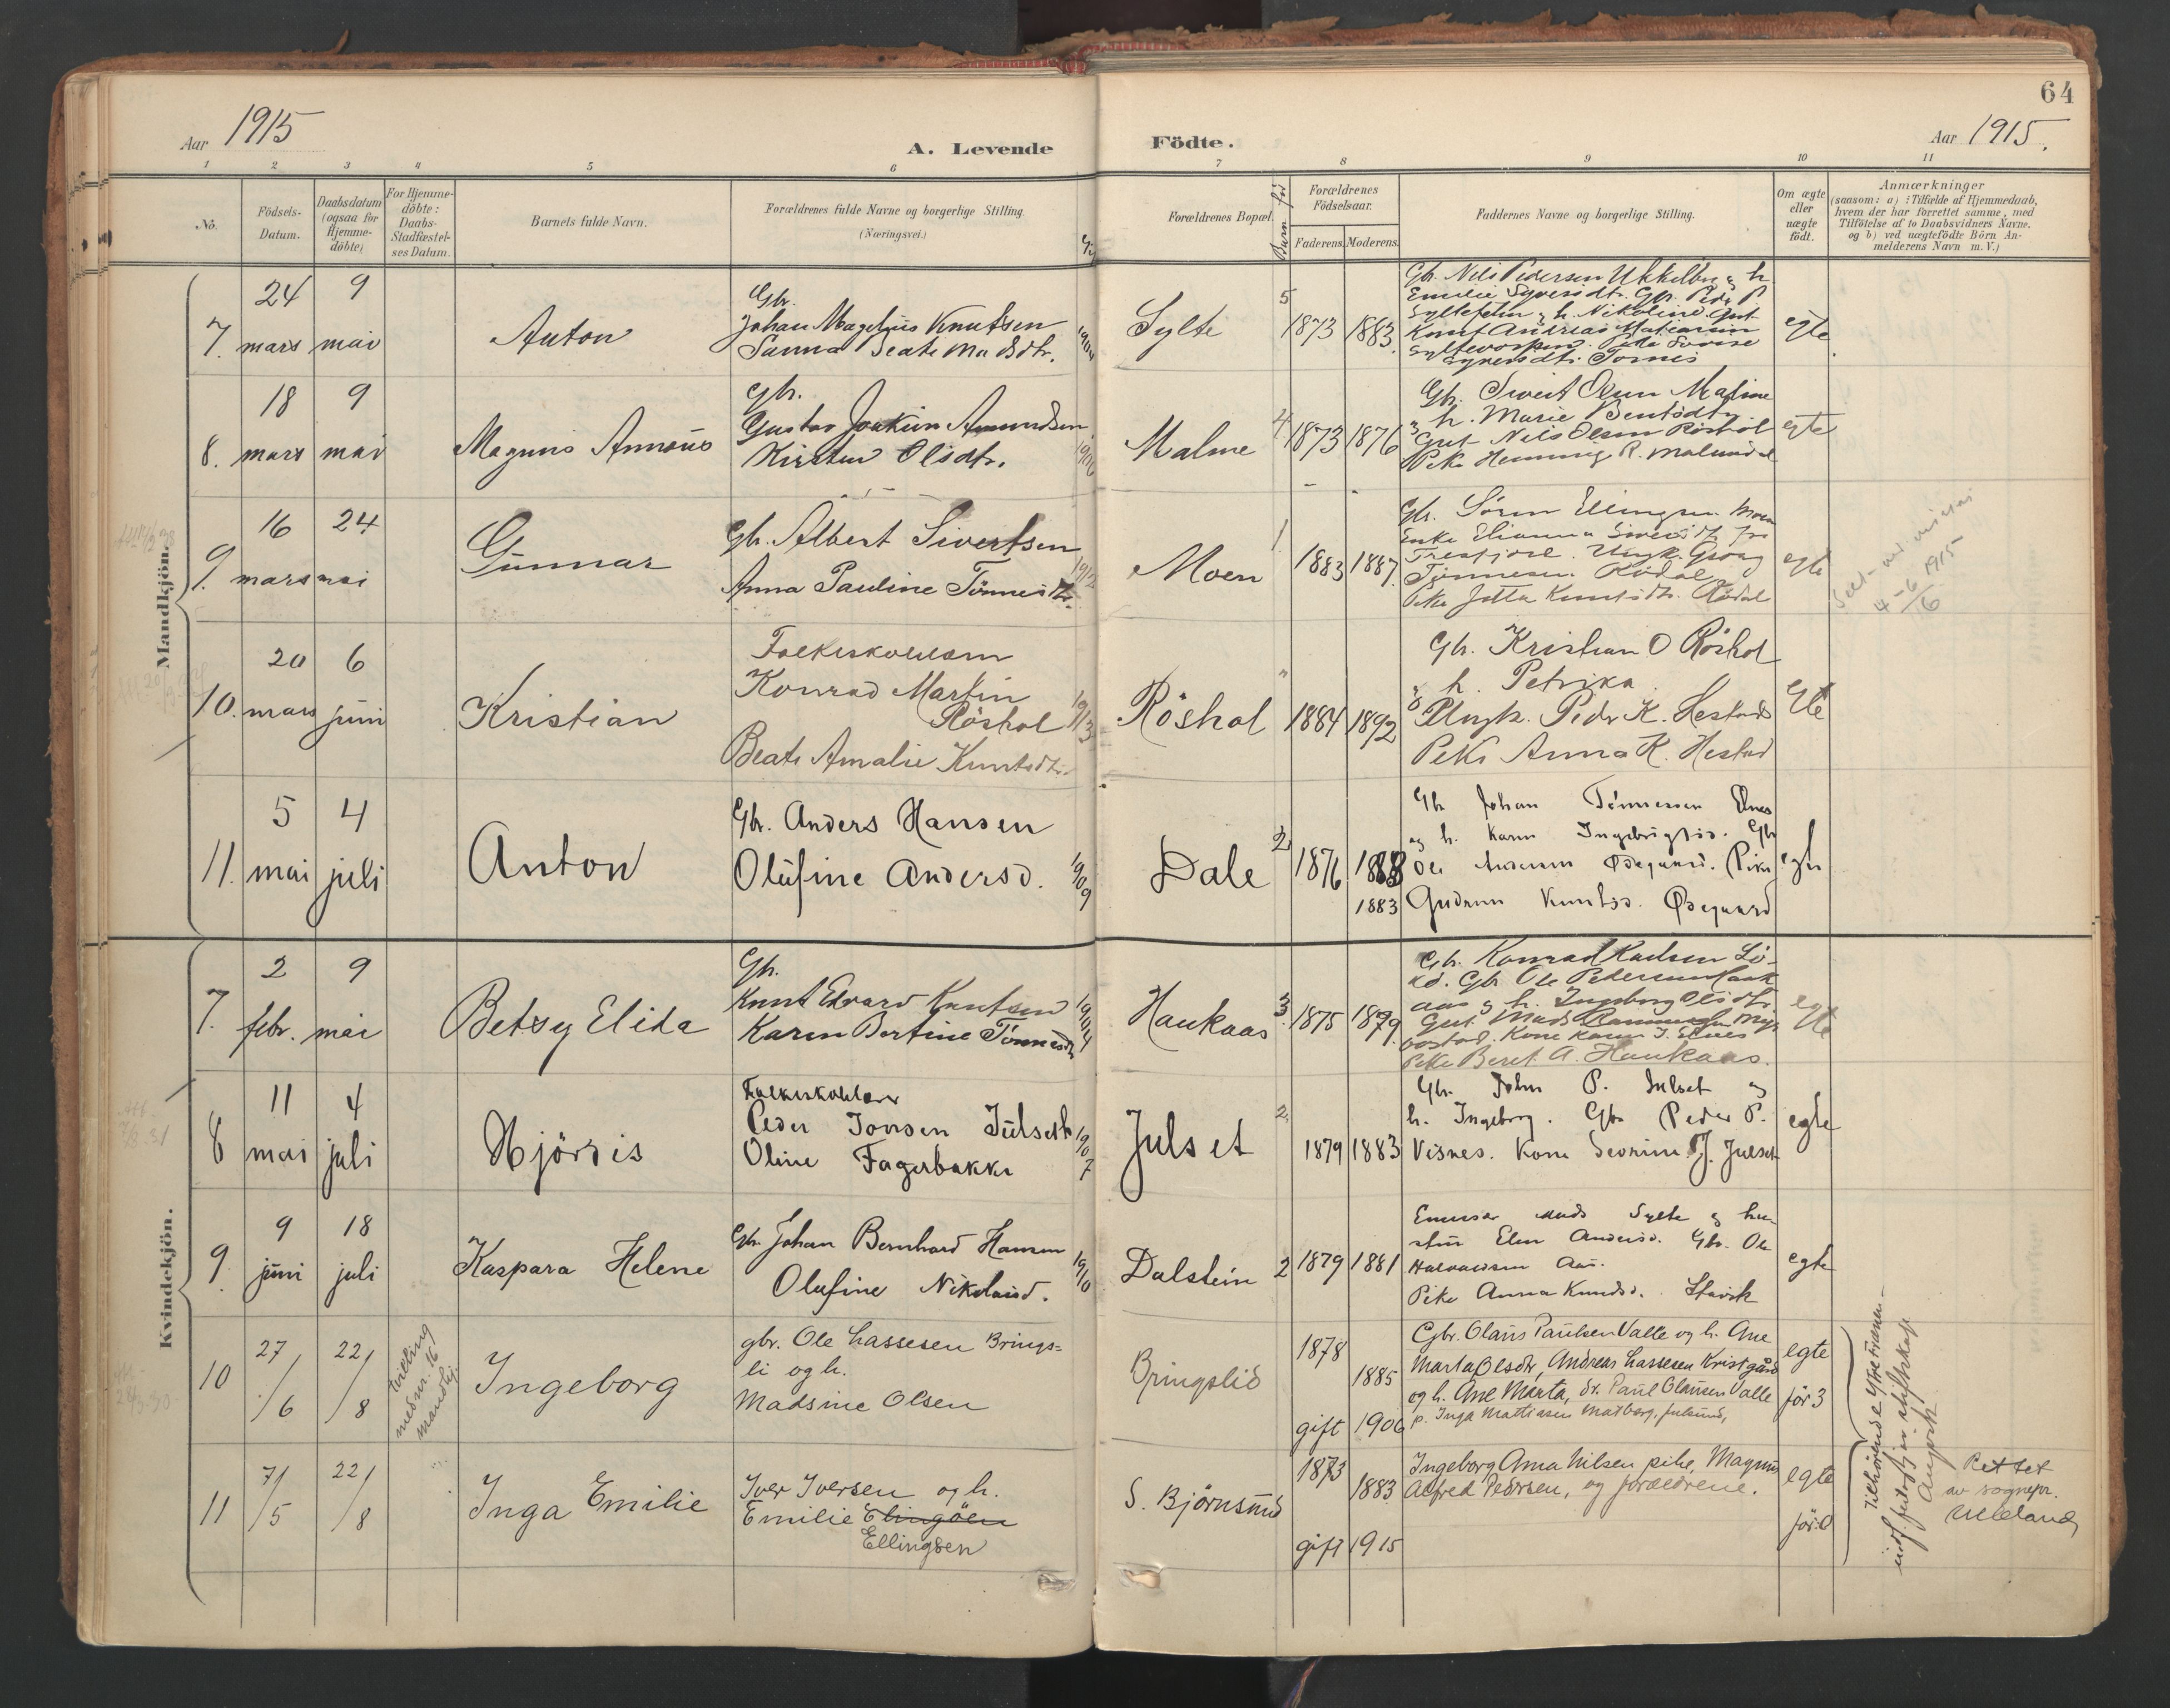 64
Aar 1915
A. Levende Födte.
Aar 1915.
1 2 3 4 5 6 7 8 9 10 11
No.
Födsels-Datum.
Daabsdatum (ogsaa for Hjemme-döbte)
For Hjemme-döbte: Daabs-Stadfæstel-ses Datum.
Barnets fulde Navn.
Forældrenes fulde Navne og borgerlige Stilling.
(Næringsvei.)
Forældrenes Bopæl.
Barn för
Forældrenes Födselsaar.
Faderens. Moderens.
Faddernes Navne og borgerlige Stilling.
Om ægte eller uægte födt.
Anmærkninger
(saasom: a) i Tilfælde af Hjemmedaab,
hvem der har forrettet samme, med
Tilföielse af to Daabsvidners Navne.
og b) ved uægtefödte Börn An-
melderens Navn m. V.)
Mandkjön.
7. 24 mars 9 mai
Anton
Gbr.
Johan Magelius Knutsen
Sanna Beate Madsdtr.
1904
Sylte
5
1873 1883
Gbr. Nils Pedersen Ukkelberg og h.
Emilie Syversdtr. Gbr. Peder P.
h. Nikoline
Knut Andreas
egte
8. 18 mars 9 mai
Magnus Annæus
Gbr.
Gustav Joakim Amundsen
Kirsten Olsdtr.
1900
Malme
4
1873 1876
Gbr. Sivert Olsen Malme
og h. Marie Bentsdtr.
Gut Nils Olsen Röshol
Pike Henning R. Malmedal
egte
9. 16 mars 24 mai
Gunnar
Gbr. Albert Sivertsen
Anna Pauline Tönnesdtr.
1912
Moen
1
1883 1887.
Gbr. Sören Ellingsen Moen
Enke Elianna Sivertsdtr. fra
Tresfjord. Ungk. Georg
Tönnesen Rödal
Pike Jetta Knutsdtr. Rödal
egte
4-6 1915
6
10. 20 mars 6 juni
Kristian
Folkeskolelærer
Konrad Martin
Röshol
Beate Amalie Knutsdtr.
1913
Röshol
"
1884 1892
Gbr. Kristian O Röshol
og h. Petrika.
Ungk. Peder K. Hestad
Pike Anna K. Hestad
Egte
11. 5 mai 4 juli
Anton
Gbr. Anders Hansen
Olufine Andersd.
1909
Dale
2
1876 1888
1883
Gbr Johan Tönnessen Elnes
og h. Karen Ingebrigtsd. Gbr
Ole Andersen Ødegaard. Pike
Gudrun Knutsd. Ødegaard
egte
Kvindekjön.
7. 2 febr. 9 mai
Betsy Elida
Gbr.
Knut Edvard Knutsen
Karen Bertine Tönnesdtr
1904
Haukaas
3
1875 1879
Gbr. Konrad Karlsen Lö-
kd. Gbr Ole Pedersen Hauk
aas og h. Ingeborg Olsdtr.
Gut Mads
Kone Karen J. Elnes
Pike Beret A. Haukaas.
egte
8 11 mai 4 juli
Hjördis
Folkeskolelærer
Peder Jonsen Julseth
Oline Fagerbakke
1907
Julset
2
1879 1883
Gbr. John P. Julset og
h. Ingeborg. Gbr Peder P.
Visnes. Kone Sevrine J. Julset
egte
9. 9 juni 18 juli
Kaspara Helene
Gbr. Johan Bernhard Hansen
Olufine Nikolaisd.
1910
Dalstein
2
1879 1881
Emissær Mads Sylte og hu-
stru Elen Andersd. Gbr. Ole
Halvorsen Aas.
Pike Anna Knudsd. Stavik
egte
10 27/6 22/8
tvilling med nr. 16 mandkj.
Ingeborg
gbr. Ole Lassesen Brings=
li og h.
Madsine Olsen
Bringslid
1878
1885
gift 1906
Gbr. Olaus Paulsen Valle og h. Ane
Marta Olsdtr, Andreas Lassesen Kristgård
og h. Ane Marta, dr. Paul Olausen Valle
p. Inga Mattiasen Malberg, Julsund,
egte
för 3
11 7/5 22/8
Inga Emilie
Iver Iversen og h.
Emilie Elingsen
Ellingsen
S. Björnsund
1873
1883
gift 1915
Ingeborg Anna Nilsen pike, Magnus
Alfred Pedersen, og forældrene.
egte
för: 0
Tilhörende Ytre Fræna -
Rettet
av sognepr.
Ulleland